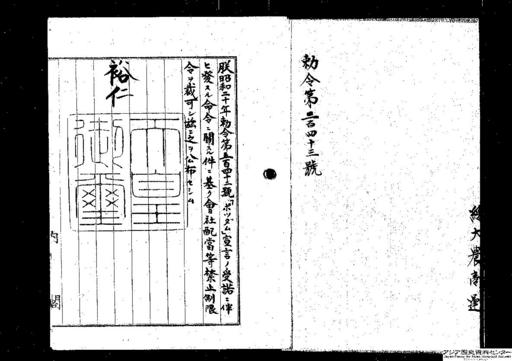 勅令第二百四十三號
朕昭和二十年勅令第五百四十二號「ポツダム」宣言ノ受諾ニ伴
ヒ發スル命令ニ關スル件ニ基ク會社配當等禁止制限
令ヲ裁可シ茲ニ之ヲ公布セシム
裕仁
天皇
御璽
内
閣
アジア歴史資料センター